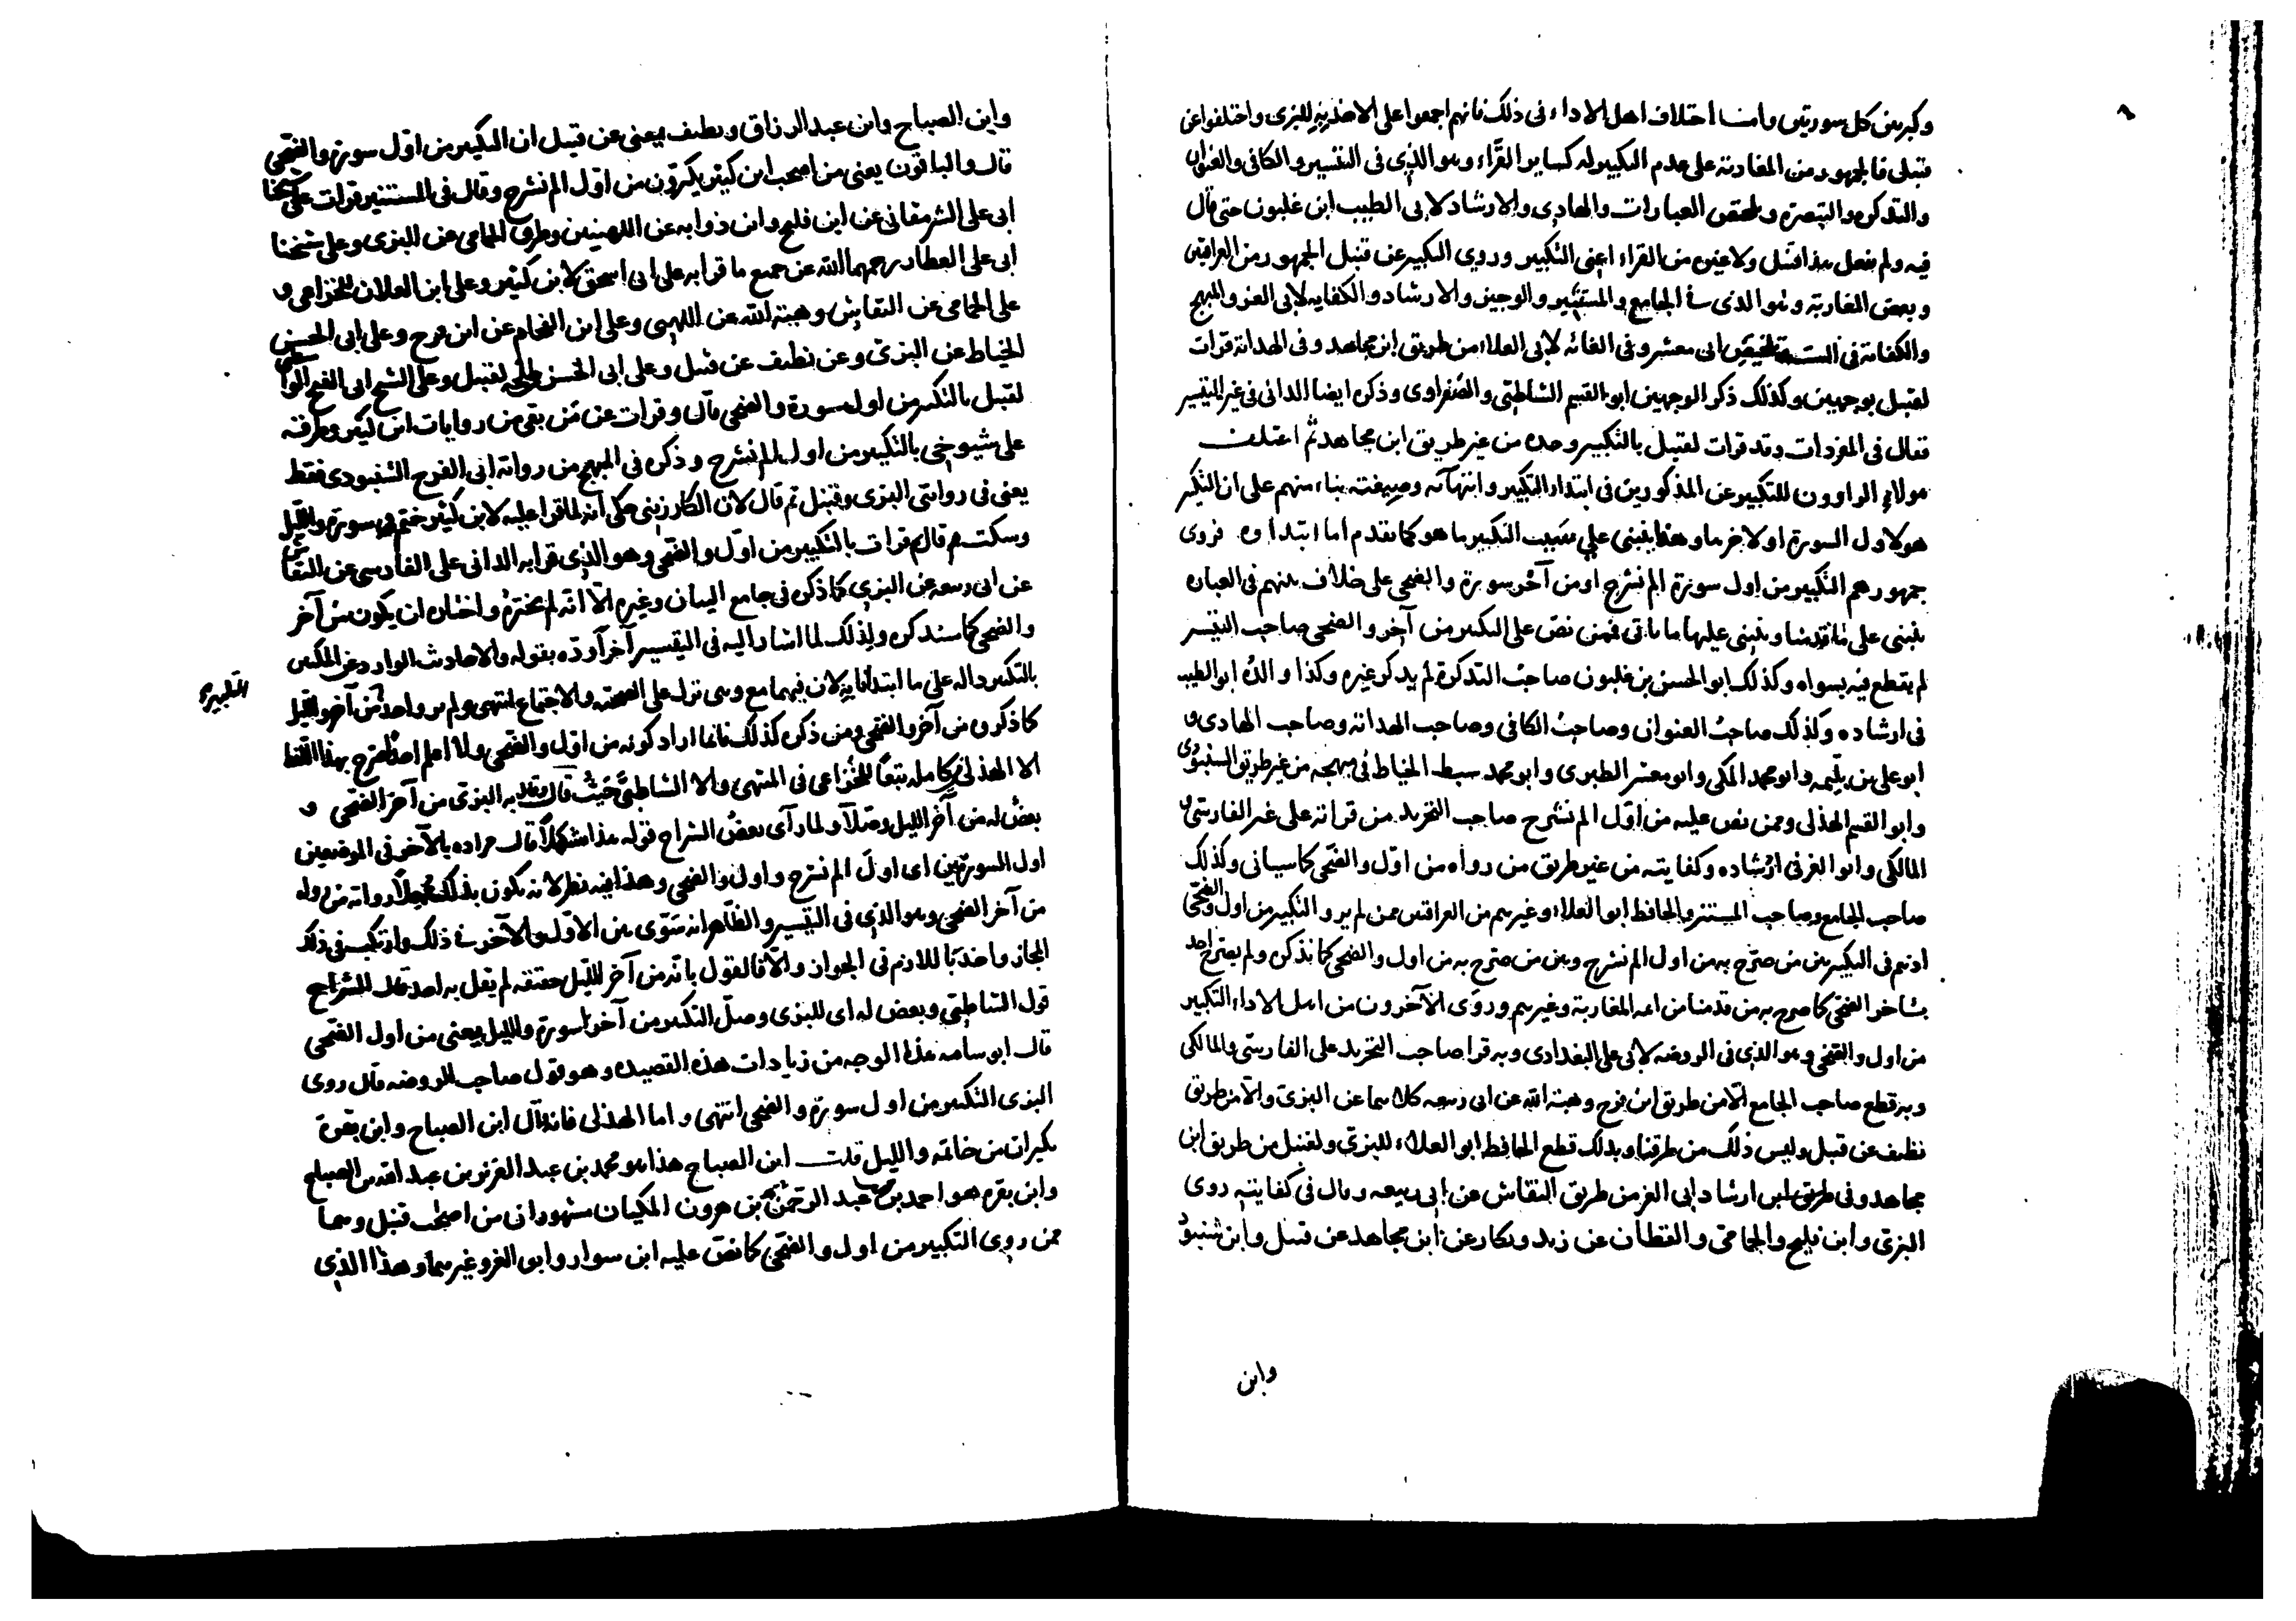 وكبر بين كل سورتين وامـا اختلاف اهل الاداء فى ذلك فانهم اجمعوا على الاخذ به للبزى واختلفوا عن
قنبل فالجمهور من المغاربة على عدم التكبير له كساير القراء وهو الذى فى التيسير والكافى والعنوان
والتذكره والتبصرة وتلخيص العبارات والهادى والارشاد لابى الطيب ابن غلبون حتى قال
فيه ولم يفعل هذا قنبل ولا غيره من القراء اعنى التكبير وروى التكبير عن قنبل الجمهور من العراقيين
وبعض المغاربة وهو الذى فى الجامع والمستنير والوجيز والارشاد والكفايه لابى العز والمبهج
والكفاية فى الست وتلخيص ابى معشر وفى الغايه لابى العلاء من طريق ابن مجاهد وفى الهداية قرات
لقنبل بوجهين وكذلك ذكر الوجهين ابو القسم الشاطبى والصفراوى وذكره ايضا الدانى فى غير التيسير
فقال فى المفردات وقد قرات لقنبل بالتكبير وحده من غير طريق ابن مجاهد ثم اختلف
هولاء الراوون للتكبير عن المذكورين فى ابتداء التكبير وانتهائه وصيغته بناء منهم على ان التكبير
هو لاول السورة او لاخرها وهذا ينبنى على سبب التكبير ما هو كما تقدم اما ابتداوه فروى
جمهورهم التكبير من اول سورة الم نشرح او من آخر سورة والضحى على خلاف بينهم فى العبارة
ينبنى على ما قدمنا وينبنى عليها ما ياتى فممن نص على التكبير من آخر والضحى صاحب التيسير
لم يقطع فيه بسواه وكذلك ابو الحسن بن غلبون صاحب التذكرة لم يذكر غيره وكذا والده ابو الطيب
فى ارشاده وكذلك صاحب العنوان وصاحب الكافى وصاحب الهداية وصاحب الهادى و
ابو على بن بليمه وابو محمد المكى وابو معشر الطبرى وابو محمد سبط الخياط فى مبهجه من غير طريق الشنبوذى
وابو القسم الهذلى وممن نص عليه من اول الم نشرح صاحب التجريد من قراته على غير الفارسى و
المالكى وابو العز فى ارشاده وكفايته من غير طريق من رواه من اول والضحى كما سياتى وكذلك
صاحب الجامع وصاحب المستنير والحافظ ابو العلاء وغيرهم من العراقيين ممن لم يرو التكبير من اول والضحى
اذ هم فى التكبير بين من صرح به من اول الم نشرح وبين من صرح به من اول والضحى كما نذكره ولم يصرح احد
بـاخر الضحى كما صرح به من قدمنا من ايمه المغاربة وغيرهم وروى الآخرون من اهل الاداء التكبير
من اول والضحى وهو الذى فى الروضه لابى على البغدادى وبه قرا صاحب التجريد على الفارسى والمالكى
وبه قطع صاحب الجامع الا من طريق ابن فرح وهبة الله عن ابى ربيعه كلاهما عن البزى والا من طريق
نظيف عن قنبل وليس ذلك من طرقنا وبذلك قطع الحافظ ابو العلاء للبزى ولقنبل من طريق ابن
مجاهد وفى ارشاد ابى العز من طريق النقاش عن ابى ربيعه وقال فى كفايته روى
البزى وابن فليح والحمامى والقطان عن زيد وبكار عن ابن مجاهد عن قنبل وابن شنبوذ
وابن
وابن الصباح وابن عبد الرزاق ونظيف يعنى عن قنبل ان التكبير من اول سورة والضحى
قال والباقون يعنى من اصحاب ابن كثير يكبرون من اول الم نشرح وقال فى المستنير قرات على شيخنا
ابى على الشرمقانى عن ابن فليح وابن ذوابه عن اللهبيين وطرق الحمامى عن البزى وعلى شيخنا
ابى على العطار رحمهما الله عن جميع ما قرا به على ابى اسحق لابن كثير وعلى ابن العلان للخزاعى و
على الحمامى عن النقاش وهبة الله عن اللهبى وعلى ابن الفحام عن ابن فرح وعلى ابى الحسن
الخياط عن البزى وعن نظيف عن قنبل وعلى ابى الحسن لقنبل وعلى الشيخ ابى الفتح الواسطى
لقنبل بالتكبير من اول سورة والضحى قال وقرات عن من بقى من روايات ابن كثير وطرقه
على شيوخى بالتكبير من اول الم نشرح وذكره فى المبهج من رواية ابى الفرج الشنبوذى فقط
يعنى فى روايتى البزى وقنبل ثم قال لان الكارزينى حكى انه لما قرا عليه لابن كثير ختم سورة والليل
وسكت ثم قال قرات بالتكبير من اول والضحى وهو الذى قرا به الدانى على الفارسى عن النقاش
عن ابى ربيعه عن البزى كما ذكره فى جامع البيان وغيره الا انه لم يختره واختار ان يكون من آخر
والضحى كما سنذكره ولذلك لما اشار اليه فى التيسير آخرا رده بقوله والاحاديث الوارده عن المكيين
بالتكبير داله على ما ابتدانا به لان فيهما مع وهى تدل على الصحة والاجتماع انتهى ولم يرو احد من آخر والليل
التكبير
كما ذكروه من آخر والضحى ومن ذكره كذلك فانما اراد كونه من اول والضحى ولا اعلم احدا صرح بهذا اللفظ
الا الهذلى فى كامله تبعا للخزاعى فى المنتهى والا الشاطبى حيث قال وقال به البزى من آخر الضحى و
بعض له من آخر الليل وصلا ولما رآى بعض الشراح قوله هذا مشكلا قال مراده بالآخر فى الموضعين
اول السورتين اى اول الم نشرح واول والضحى وهذا فيه نظر لانه يكون بذلك مهملا رواية من رواه
من آخر الضحى وهو الذى فى التيسير والظاهر انه سوى بين الاول والآخر فى ذلك وارتكب فى ذلك
المجاز واخذ باللازم فى الجواز والا فالقول بانه من آخر الليل حقيقه لم يقل به احد قال الشراح
قول الشاطبى وبعض له اى للبزى وصل التكبير من آخر سورة والليل يعنى من اول الضحى
قال ابو شامه هذا الوجه من زيادات هذه القصيده وهو قول صاحب الروضه قال روى
البزى التكبير من اول سورة والضحى انتهى واما الهذلى فانه قال ابن الصباح وابن بقرة
يكبران من خاتمه والليل قلت ابن الصباح هذا هو محمد بن عبد العزيز بن عبد الله بن الصباح
وابن بقره هو احمد بن محمد بن عبد الرحمن بن هرون المكيان مشهوران من اصحاب قنبل وهما
ممن روى التكبير من اول والضحى كما نص عليه ابن سوار وابو العز وغيرهما وهذا الذى